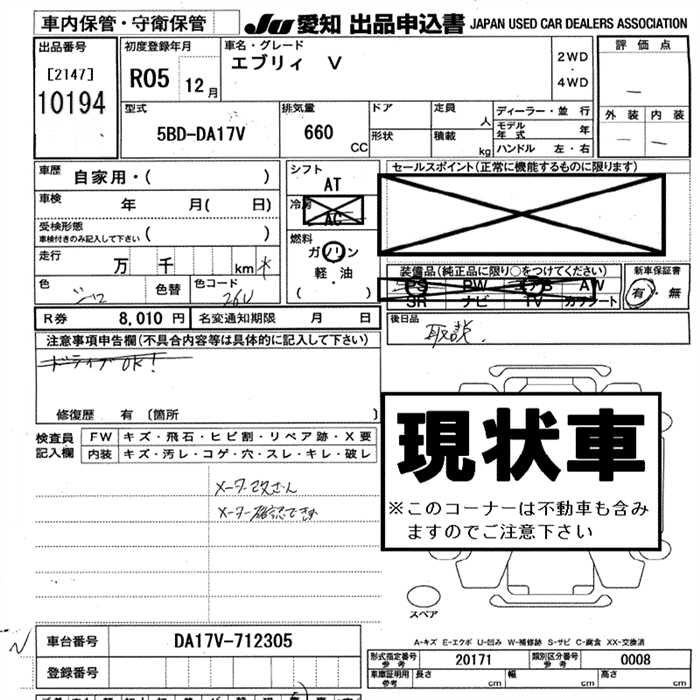 車内保管・守衛保管
JU 愛知 出品申込書 JAPAN USED CAR DEALERS ASSOCIATION
出品番号
[2147]
10194
初度登録年月
R05 12月
車名・グレード
エブリィ V
2WD
・
4WD
評価点
外装 内装
型式
5BD-DA17V
排気量
660
CC
ドア
形状
定員
人
積載
kg
ディーラー・並行
モデル年式 年
ハンドル 左・右
車歴
自家用・( )
車検 年 月( 日)
受検形態
車検付きのみ記入して下さい ( )
走行 万 千 km
色 色替 色コード
26U
シフト
AT
冷房
AC
燃料
ガソリン
軽・油
( )
セールスポイント(正常に機能するものに限ります)
装備品(純正品に限り○をつけてください)
PS PW エアB AW
SR ナビ TV カワシート
新車保証書
有・無
R券 8,010 円 名変通知期限 月 日
後日品
取説.
注意事項申告欄(不具合内容等は具体的に記入して下さい)
ドライブOK!
修復歴 有 〔箇所 〕
検査員記入欄
FW キズ・飛石・ヒビ割・リペア跡・X要
内装 キズ・汚レ・コゲ・穴・スレ・キレ・破レ
メーター改ざん
メーター確認できず
現状車
※このコーナーは不動車も含み
ますのでご注意下さい
スペア
A-キズ E-エクボ U-凹み W-補修跡 S-サビ C-腐食 XX-交換済
車台番号 DA17V-712305
登録番号
型式指定番号 参考 20171 類別区分番号 参考 0008
車庫証明用 参考 長さ cm 幅 cm 高さ cm